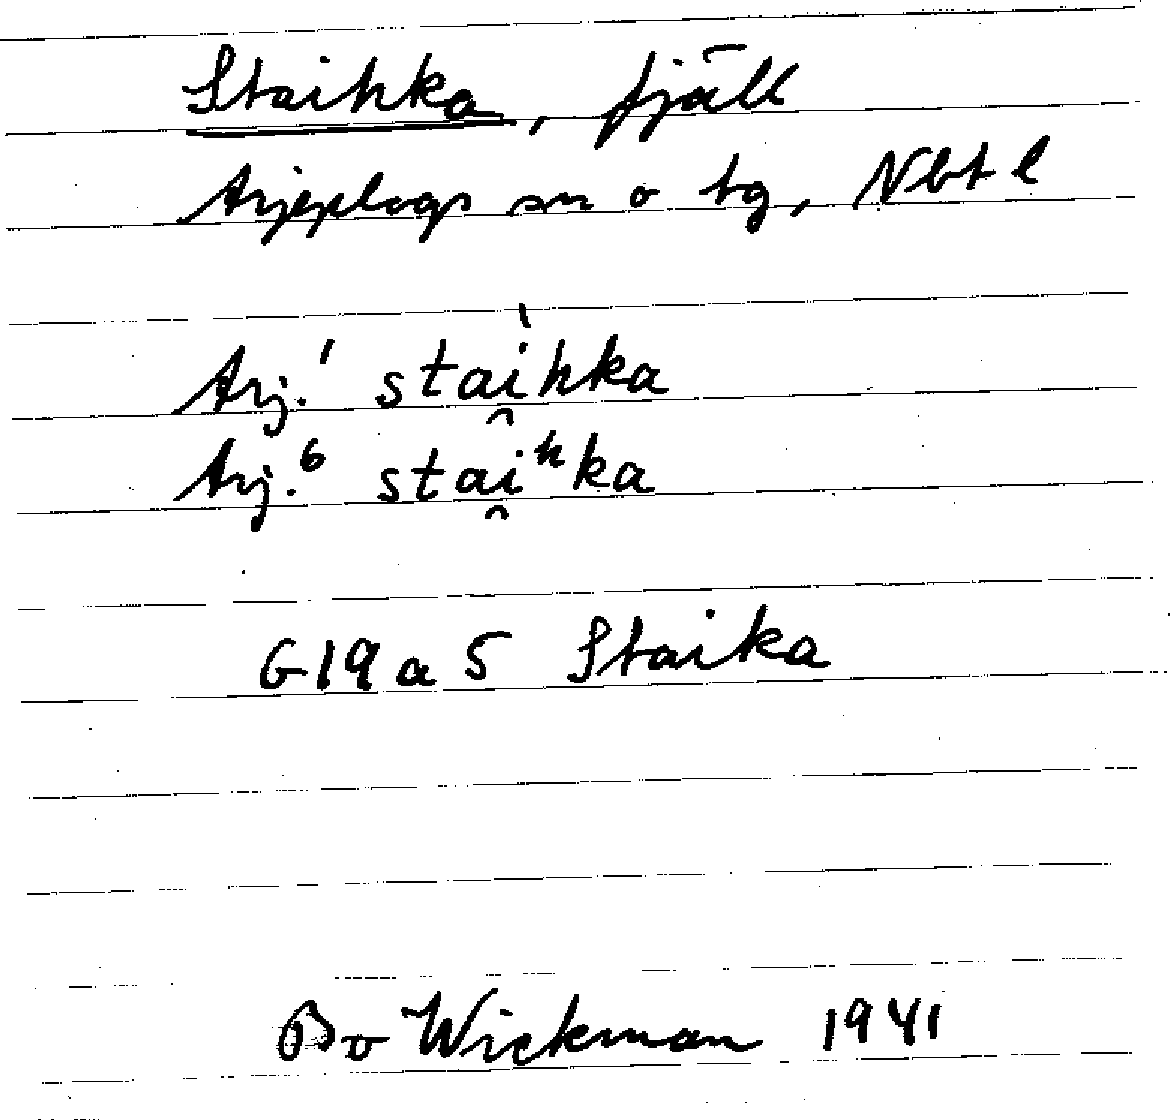 Staihka, fjäll
Arjeplogs sn o tg, Nbt l
Arj.¹ staì̯hka
Arj.⁶ stai̯ʰka
G19 a 5 Staika
Bo Wickman 1941